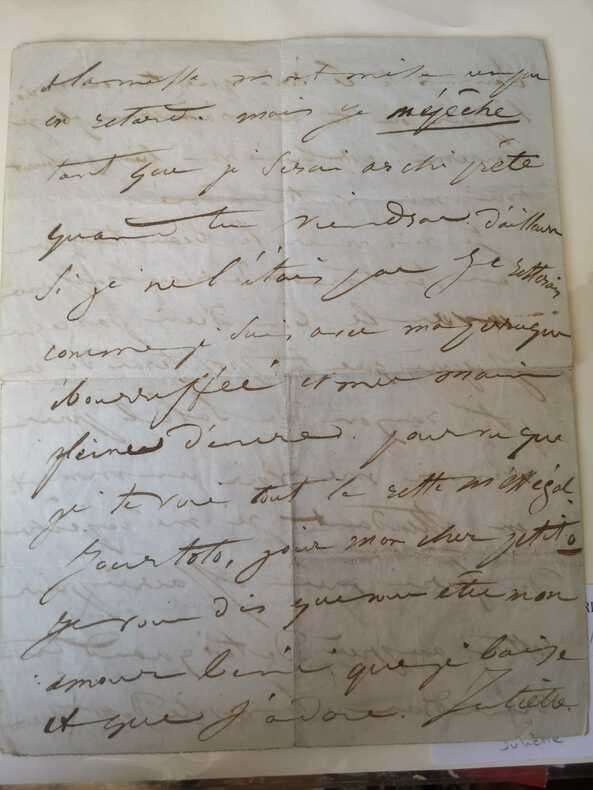 à la messe m'ont mise un peu
en retard. mais je méfêche
tant que je serai archi prête
quand tu viendras d'ailleurs
si je ne l'étais pas je resterais
comme je suis avec ma perruque
ébouriffée et mes mains
pleines d'encre. pourvu que
je te voie tout le reste m'est égal.
jour toto, jour mon cher petit o
je vous dis que vous êtes mon
amour béni que je baise
et que j'adore. Juliette.
Juliette